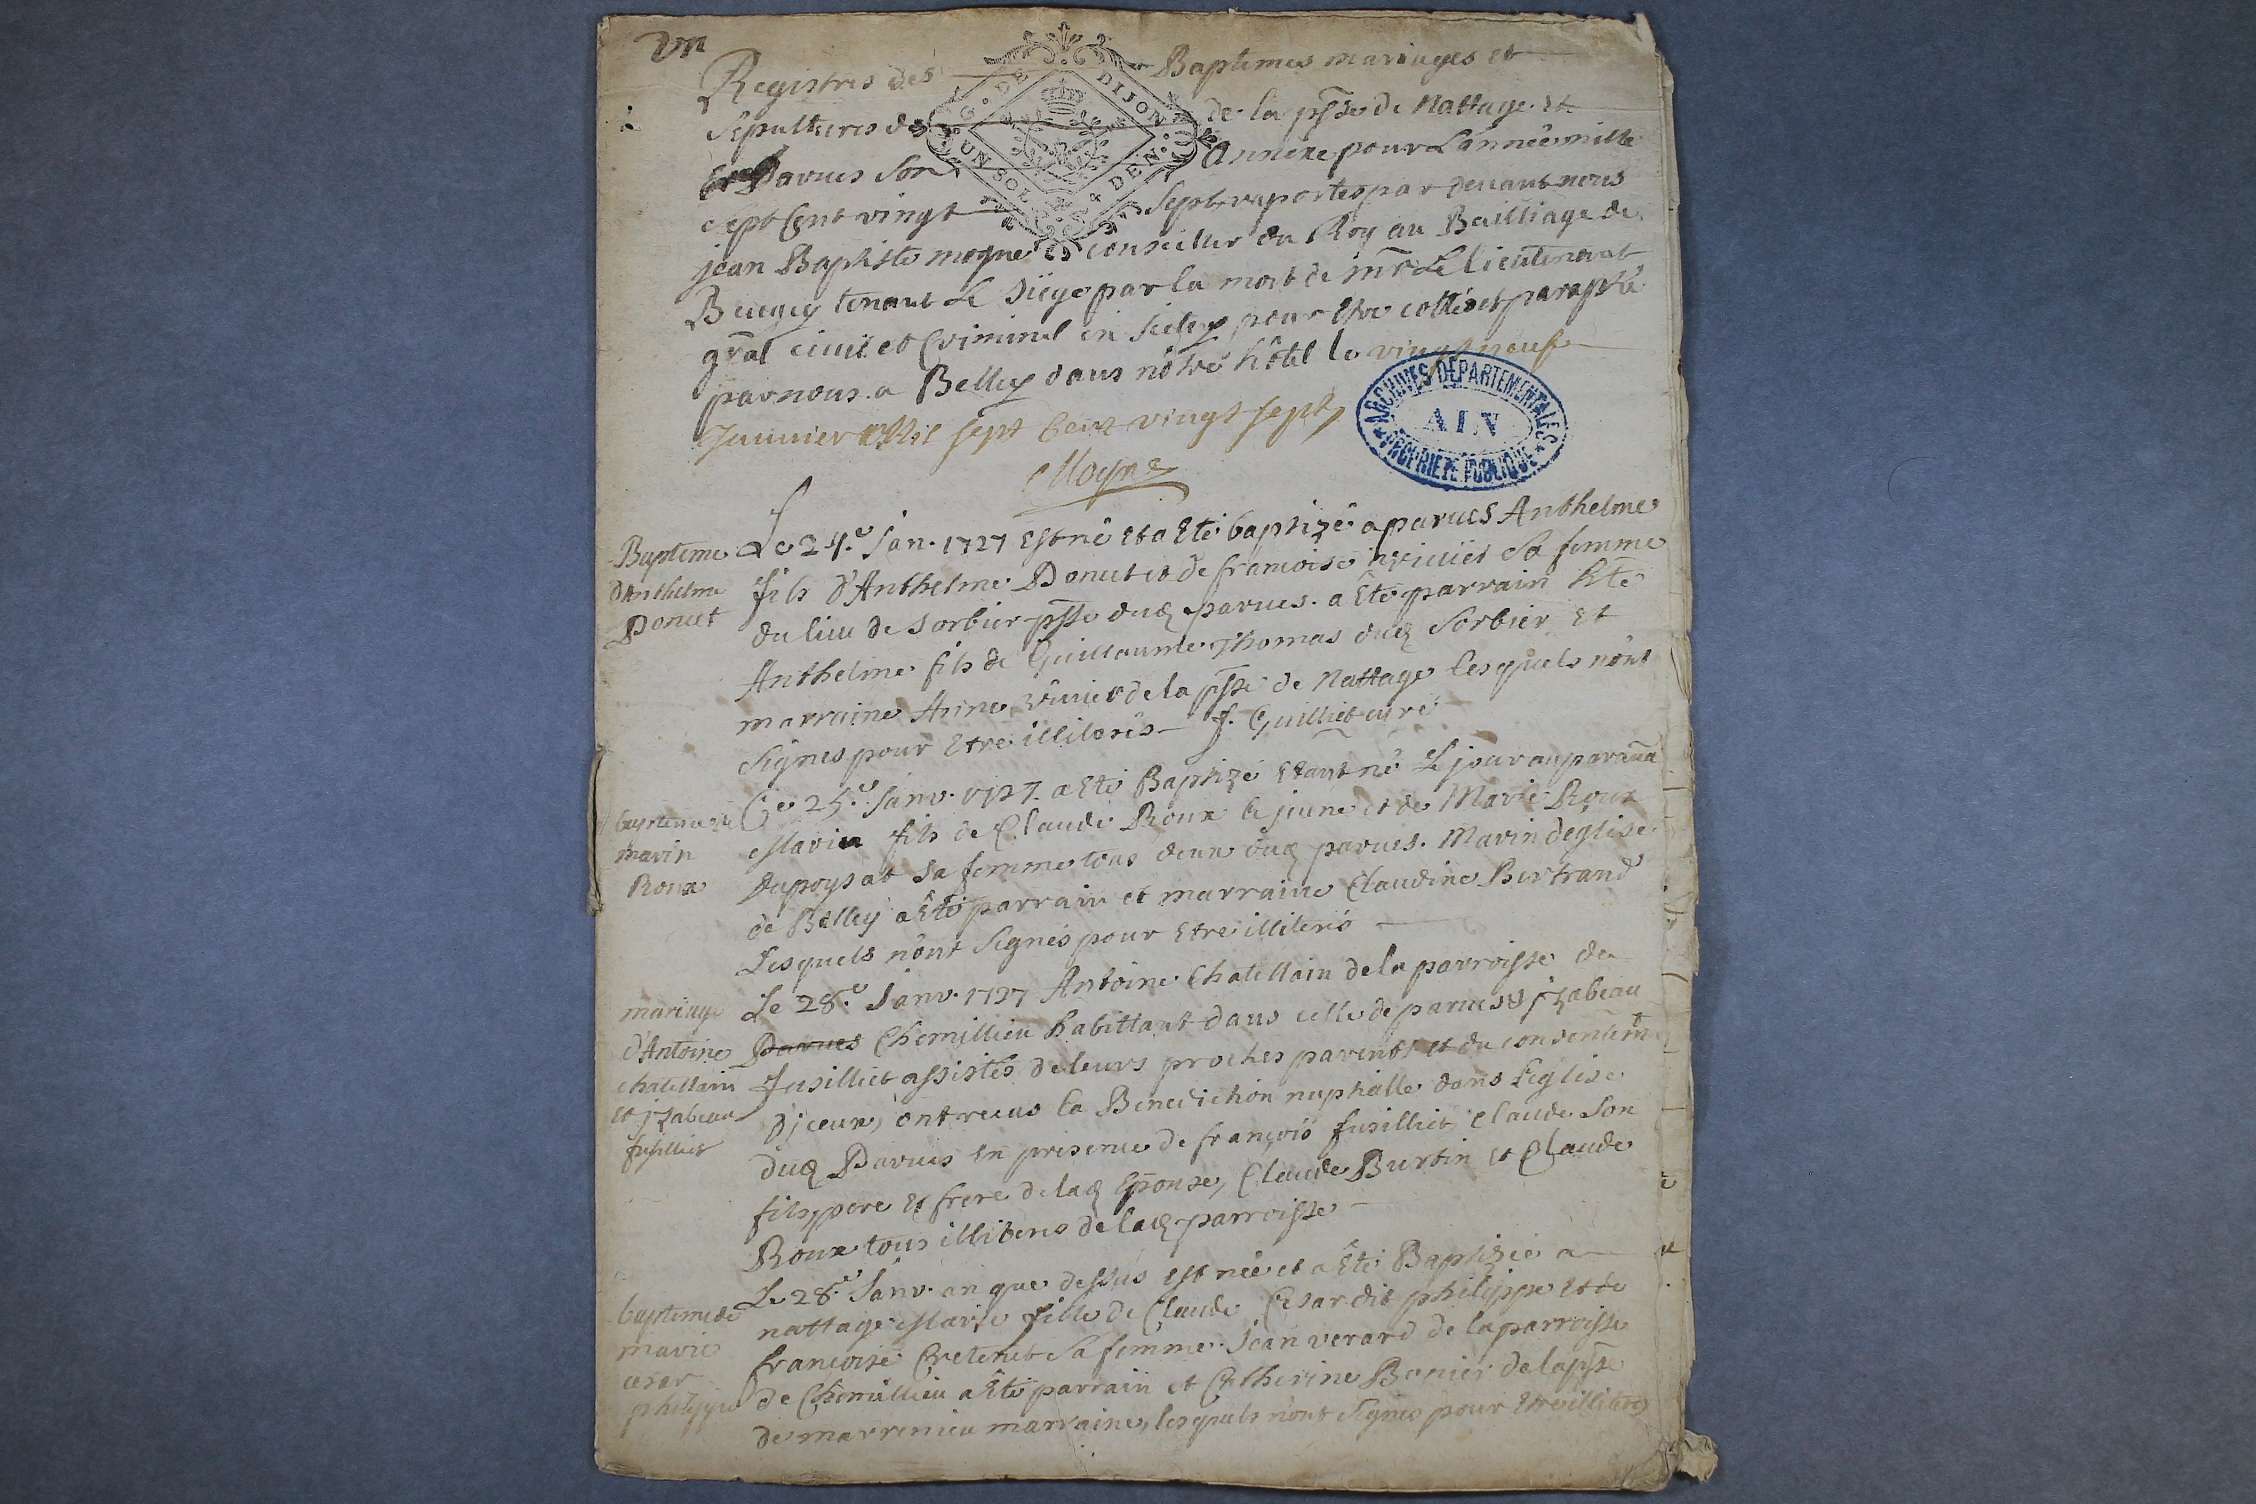 Un
Registres des Baptemes mariages et
Sepultures de de la psse de Nattage et
Parves son annexe pour L'année mille
sept Cent vingt Sept raportes par devant nous
G. DE DIJON
UN SOL 4 DEN.
jean Baptiste moyne conseiller du Roy au Bailliage de
Beugey tenant Le Siege par la mort de mr Le lieutenant
gnal civil et Criminel en Iceluy pour être cotté et paraphé
par nous a Belley dans nôtre hôtel le vingt neuf
Janvier Mil sept Cent vingt sept
Moyne
ARCHIVES DEPARTEMENTALES
AIN
PROPRIETE PUBLIQUE
Bapteme
d'Anthelme
Donet
Le 24.e Jan. 1727 Est né et a Eté baptizé a parves Anthelme
fils d'Anthelme Donet et de francoise sa femme
du lieu de Sorbier psse dud parves. a Eté parrain
Anthelme fils de Guillaume Thomas dud Sorbier Et
marraine Anne de la psse de Nattage lesquels n'ont
signés pour Etre illiterés f. Guilliet curé
bapteme de
marin
Roux
Ce 25.e Janv. 1727 a Eté Baptizé Etant né Le jour auparavā
Marin fils de Claude Roux le jeune et de Marie Roux
Dupoysat sa femme tous deux dud parves. Marin deglise
de Belley a Eté parrain et marraine Claudine Bertrand
Lesquels n'ont signés pour Etre illiterés
mariage
d'Antoine
chatellain
et jzabeau
fusilliet
Le 28.e Janv. 1727 Antoine Chatellain de la parroisse de
Parves Chemillieu habittant dans celle de parves & jzabeau
fusilliet assistés de leurs proches parents et du consentemt
d'jceux, ont receus la Benediction nuptialle dans L'eglise
dud Parves en presence de françois fusilliet Claude son
fils, pere et frere de lad Epouse, Claude Burtin et Claude
Roux tous illiterés de lad parroisse
bapteme de
marie
cesar
philippe
Le 28.e Janv. an que dessus est née et a Eté Baptizée a
nattage Marie fille de Claude Cesar dit philippe et de
francoise Cretenet sa femme. Jean verard de la parroisse
de Chemillieu a Eté parrain et Catherine Bonier de la psse
de marrenieu marraine, lesquels n'ont signés pour Etre illiterés